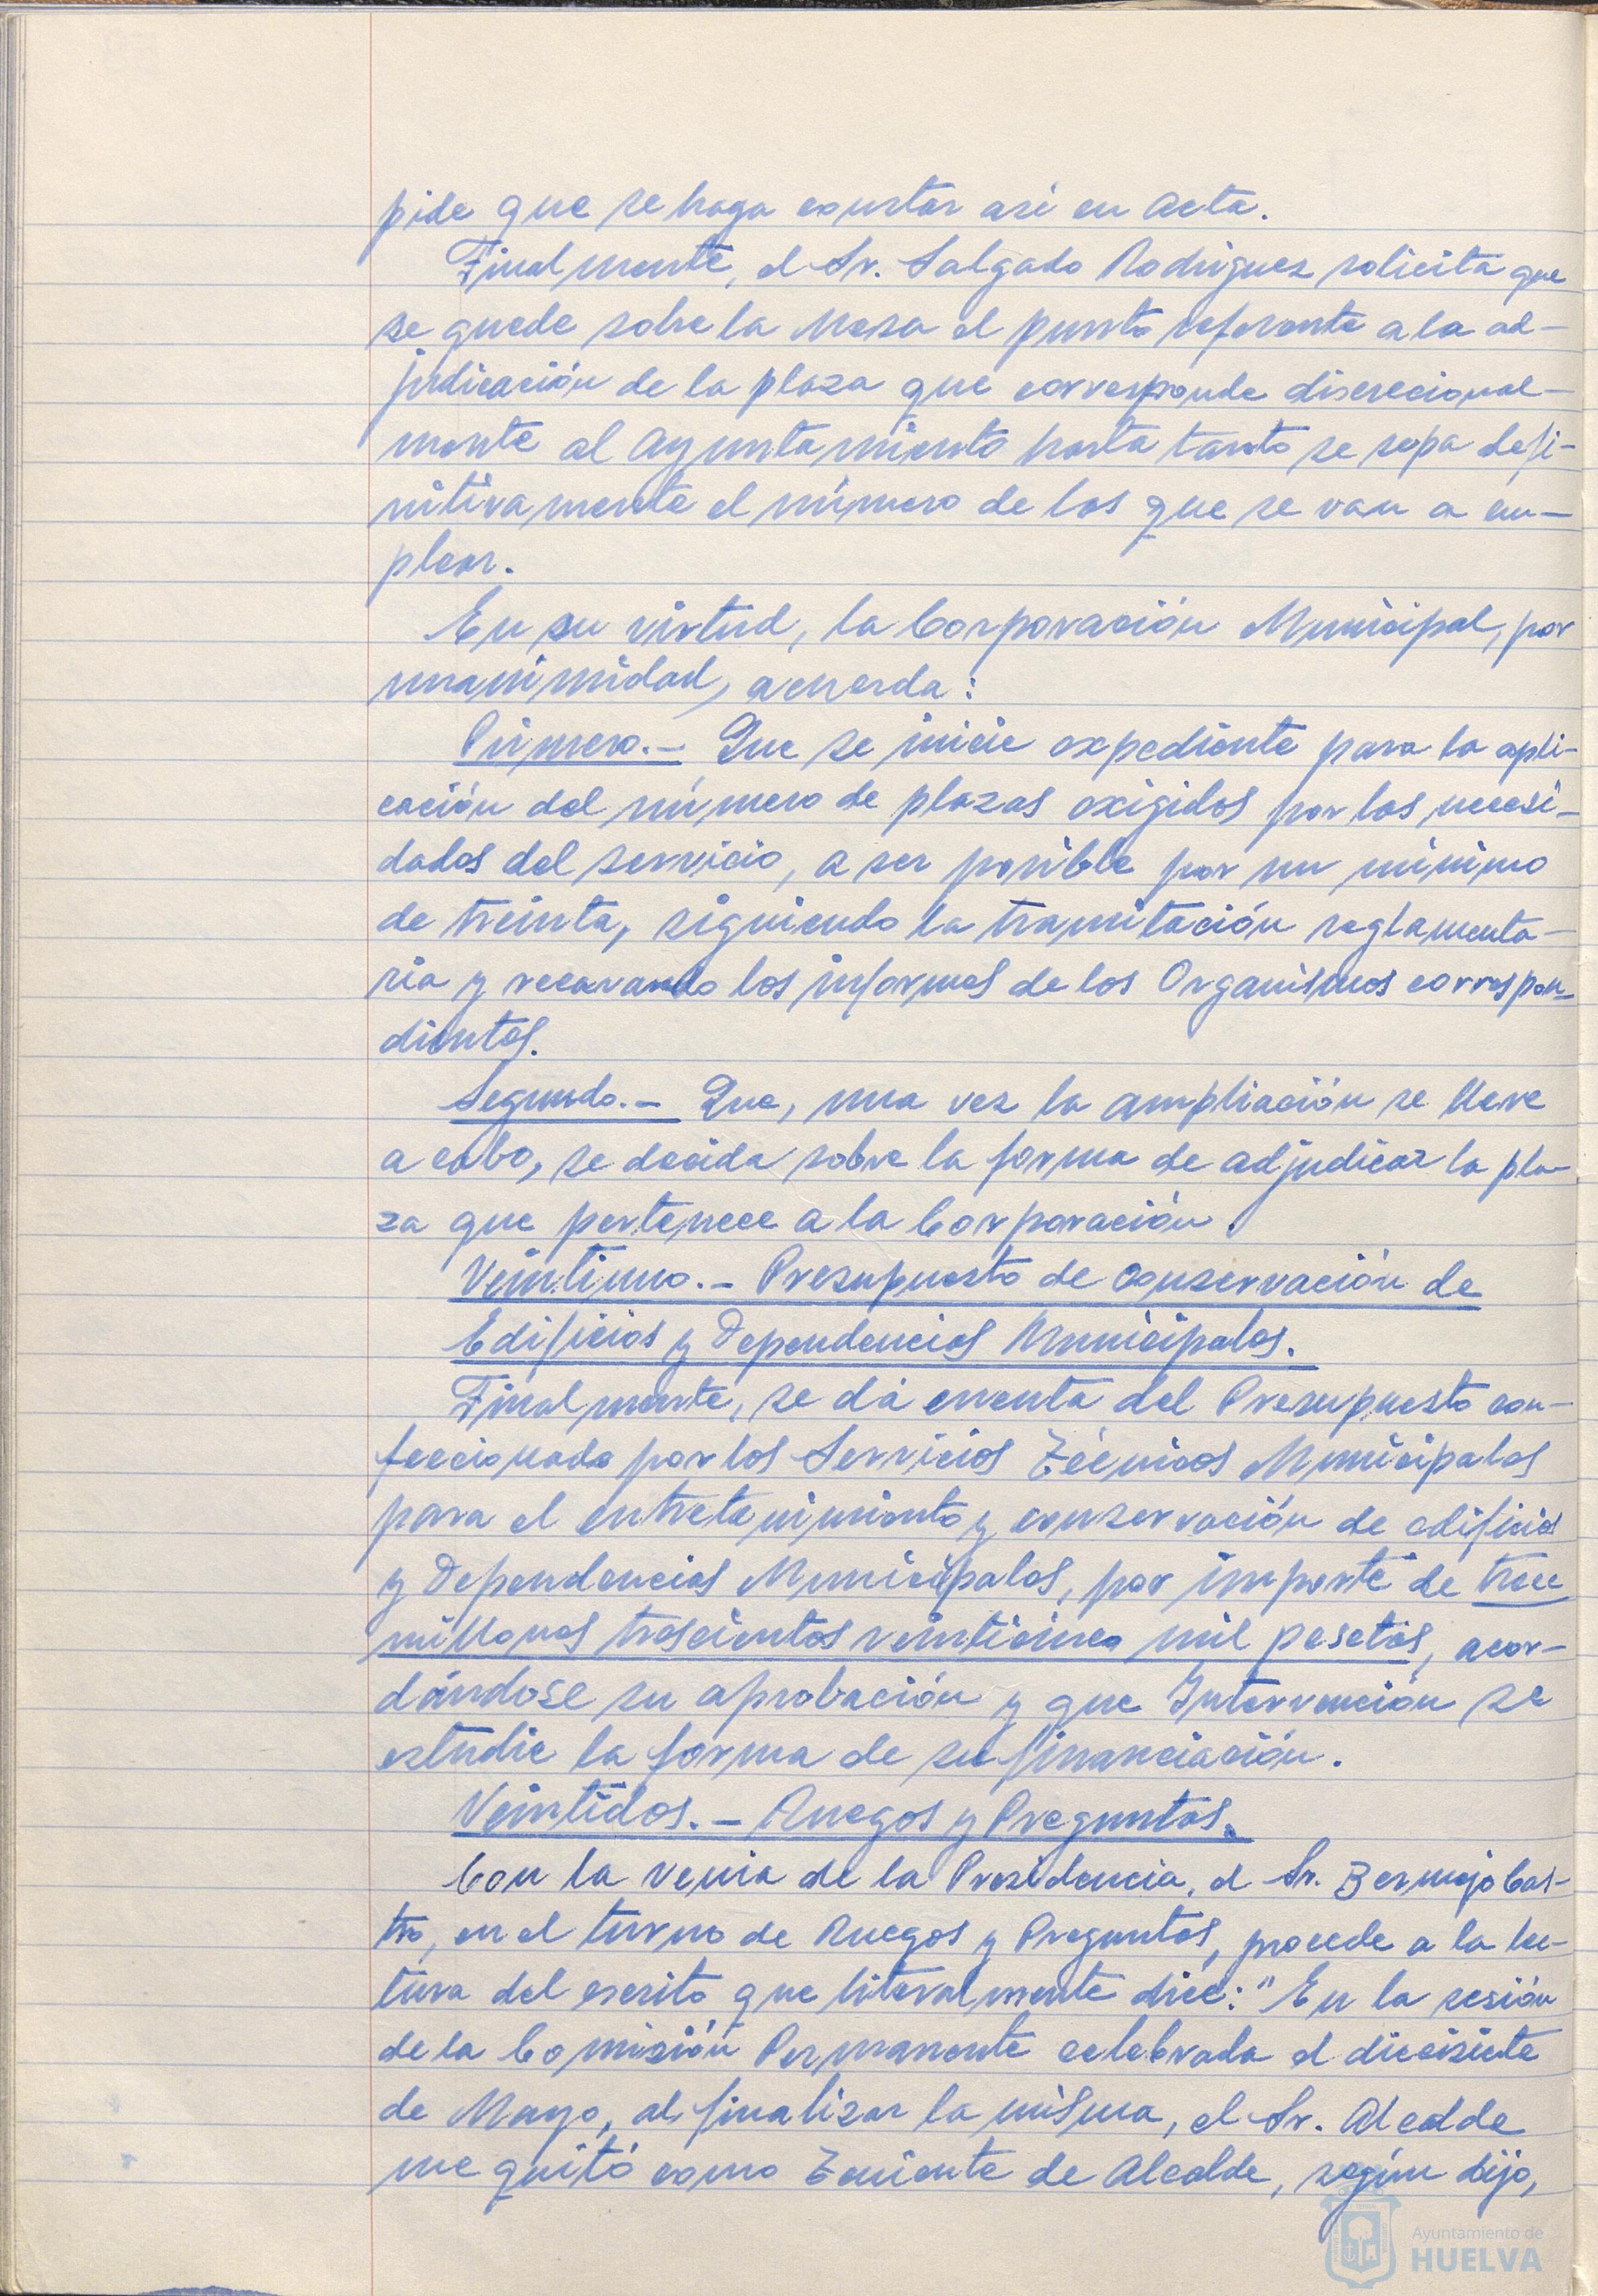 pide que se haga constar así en Acta.
Finalmente, el Sr. Salgado Rodríguez solicita que
se quede sobre la Mesa el punto referente a la ad-
judicación de la plaza que corresponde discrecional-
mente al Ayuntamiento hasta tanto se sepa defi-
nitivamente el número de los que se van a em-
plear.
En su virtud, la Corporación Municipal, por
unanimidad, acuerda:
Primero.- Que se inicie expediente para la apli-
cación del número de plazas exigidos por las necesi-
dades del servicio, a ser posible por un mínimo
de treinta, siguiendo la tramitación reglamenta-
ria y recavando los informes de los Organismos correspon-
dientes.
Segundo.- Que, una vez la ampliación se lleve
a cabo, se decida sobre la forma de adjudicar la pla-
za que pertenece a la Corporación.
Veintiuno.- Presupuesto de conservación de
Edificios y Dependencias Municipales.
Finalmente, se dá cuenta del Presupuesto con-
feccionado por los Servicios Técnicos Municipales
para el entretenimiento y conservación de edificios
y Dependencias Municipales, por importe de trece
millones trescientas veinticinco mil pesetas, acor-
dándose su aprobación y que Intervención se
estudie la forma de su financiación.
Veintidos.- Ruegos y Preguntas.
Con la venia de la Presidencia, el Sr. Bermejo Cas-
tro, en el turno de Ruegos y Preguntas, procede a la lec-
tura del escrito que literalmente dice: "En la sesión
de la Comisión Permanente celebrada el diecisiete
de Mayo, al finalizar la misma, el Sr. Alcalde
me quitó como Teniente de Alcalde, según dijo,
Ayuntamiento de
HUELVA